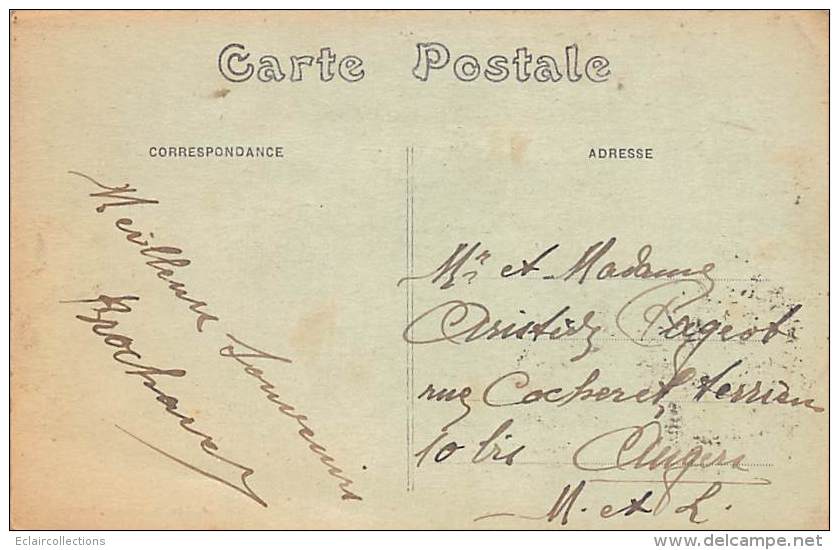 Carte Postale
CORRESPONDANCE
ADRESSE
Meilleurs Souvenirs
Mr et Madame
Aristide Pageot
rue Cocheret terrien
10 bis Angers
M. et L.
Eclaircollections
www.delcampe.net